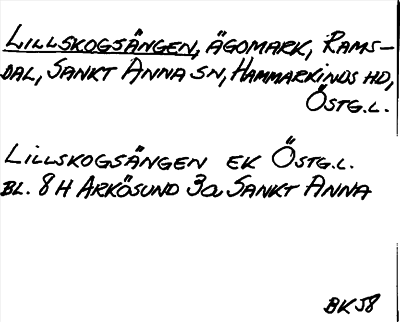 LILLSKOGSÄNGEN, ÄGOMARK, RAMS-
DAL, SANKT ANNA SN, HAMMARKINDS HD,
ÖSTG.L.
LILLSKOGSÄNGEN EK ÖSTG.L.
BL. 8 H ARKÖSUND 3a SANKT ANNA
BK58